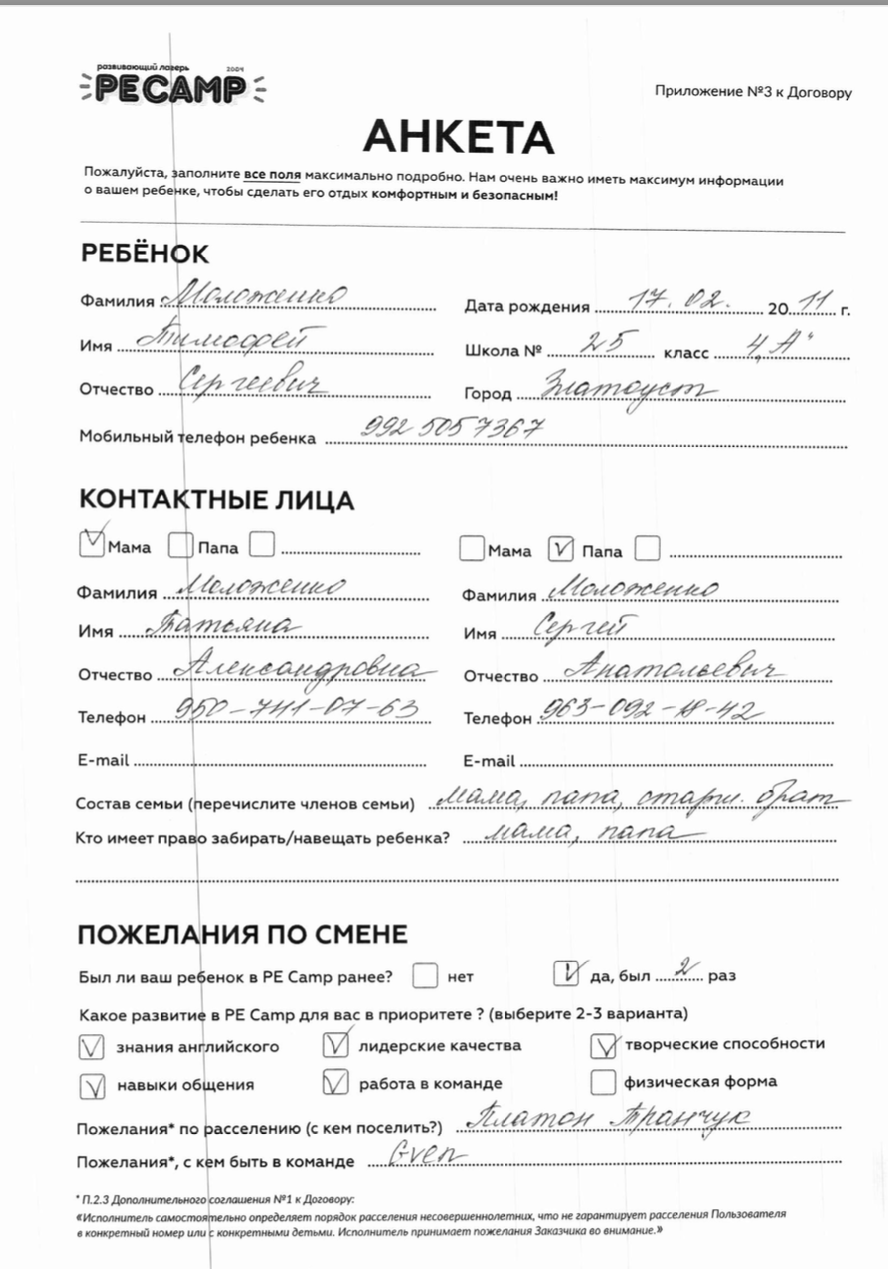 развивающий лагерь 2004
PE CAMP
Приложение №3 к Договору
АНКЕТА
Пожалуйста, заполните все поля максимально подробно. Нам очень важно иметь максимум информации
о вашем ребенке, чтобы сделать его отдых комфортным и безопасным!
РЕБЁНОК
Фамилия Моложенко
Дата рождения 17. 02. 2011 г.
Имя Тимофей
Школа № 25 класс 4 „А"
Отчество Сергеевич
Город Златоуст
Мобильный телефон ребенка 992 505 7367
КОНТАКТНЫЕ ЛИЦА
Мама Папа
Мама Папа
Фамилия Моложенко
Фамилия Моложенко
Имя Татьяна
Имя Сергей
Отчество Александровна
Отчество Анатольевич
Телефон 950-741-07-63
Телефон 963-092-18-42
E-mail
E-mail
Состав семьи (перечислите членов семьи) мама, папа, старш. брат
Кто имеет право забирать/навещать ребенка? мама, папа
ПОЖЕЛАНИЯ ПО СМЕНЕ
Был ли ваш ребенок в PE Camp ранее? нет да, был 2 раз
Какое развитие в PE Camp для вас в приоритете ? (выберите 2-3 варианта)
знания английского лидерские качества творческие способности
навыки общения работа в команде физическая форма
Пожелания* по расселению (с кем поселить?) Платон Транчук
Пожелания*, с кем быть в команде Gven
* П.2.3 Дополнительного соглашения №1 к Договору:
«Исполнитель самостоятельно определяет порядок расселения несовершеннолетних, что не гарантирует расселения Пользователя
в конкретный номер или с конкретными детьми. Исполнитель принимает пожелания Заказчика во внимание.»